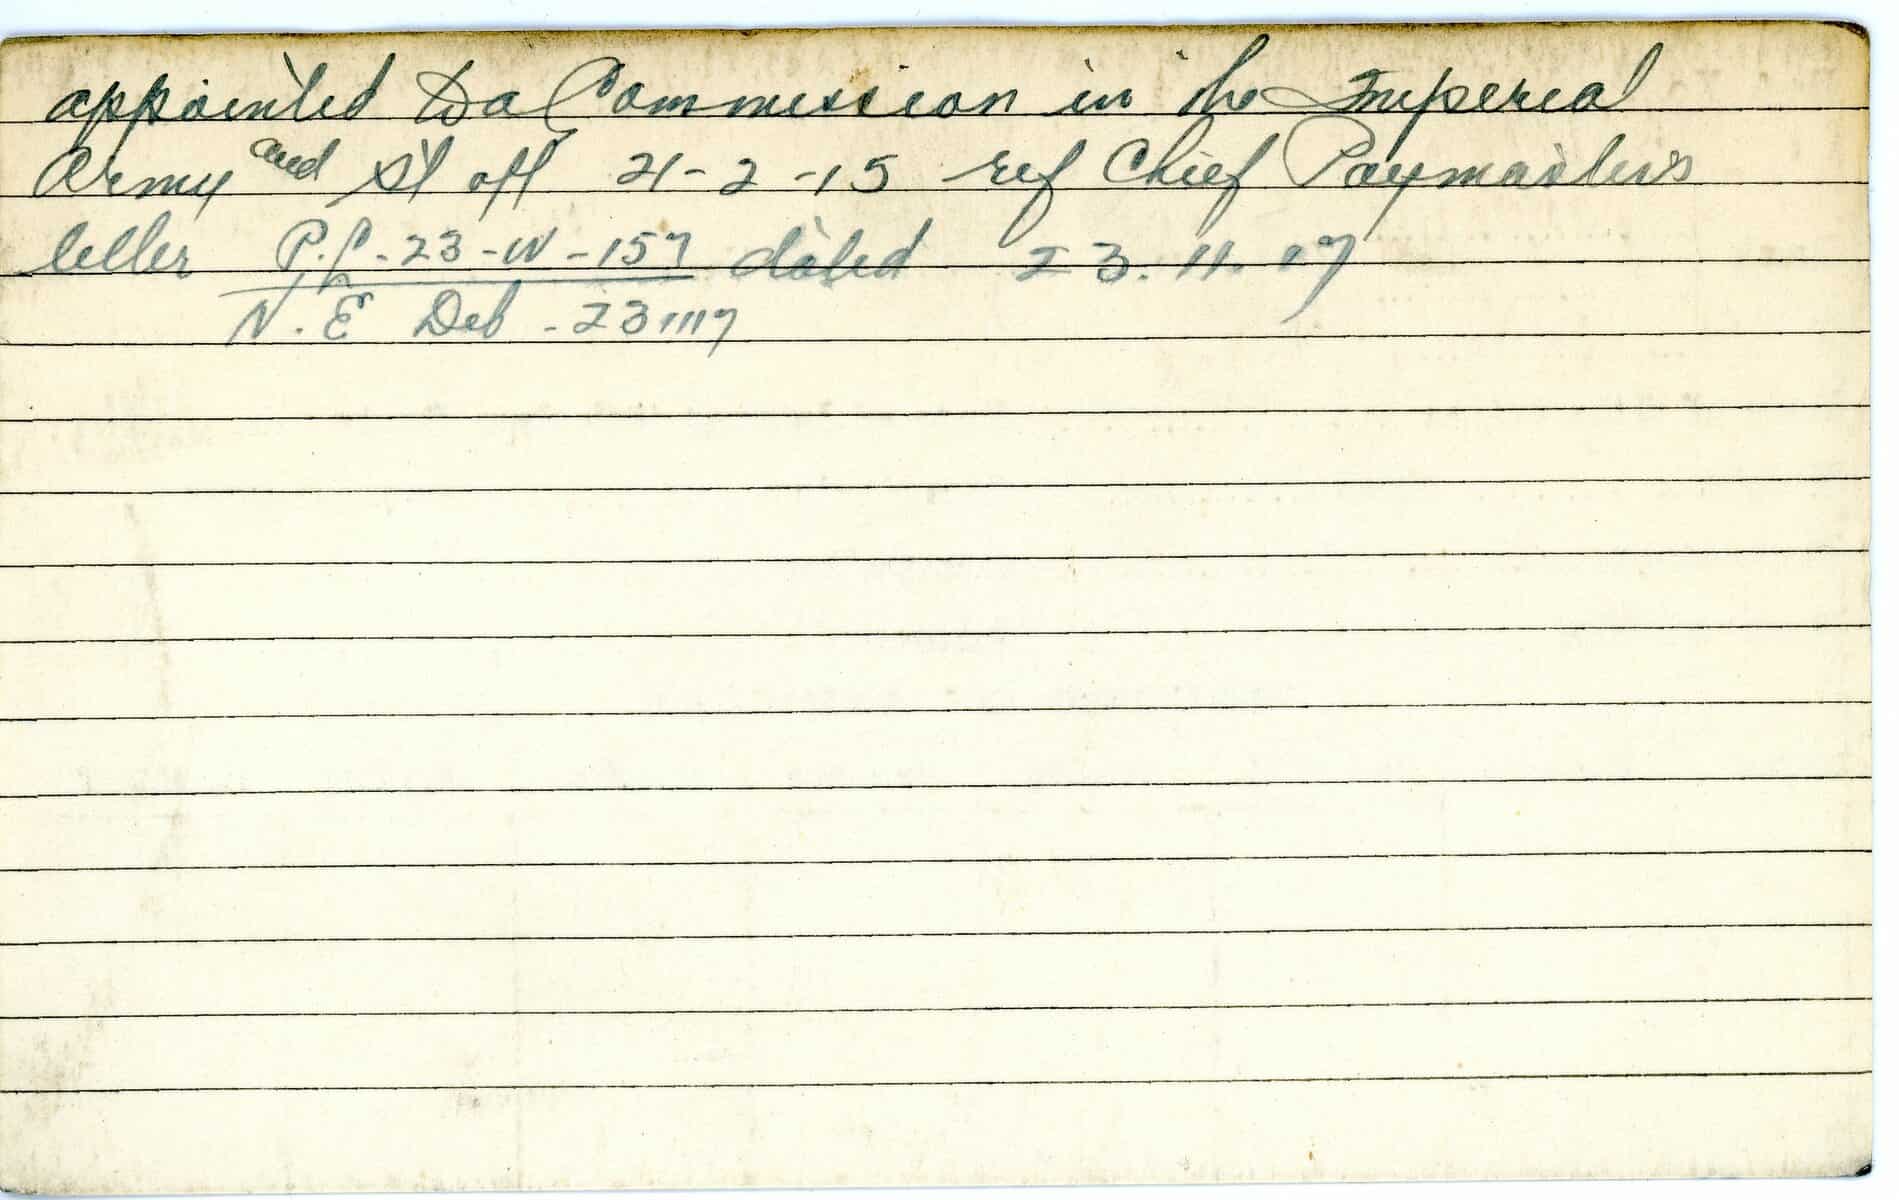 appointed to a Commission in the Imperial
Army and St off 21-2-15 ref Chief Paymaster's
letter P.C-23-W-157 dated 23.11.17
N.E Deb - 231117